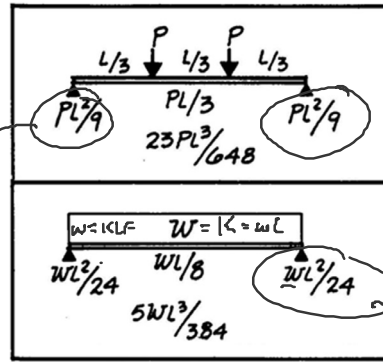 P P
L/3 L/3 L/3
PL/3
PL²/9 PL²/9
23PL³/648
w=KLF W = K = wL
WL/8
WL²/24 WL²/24
5WL³/384